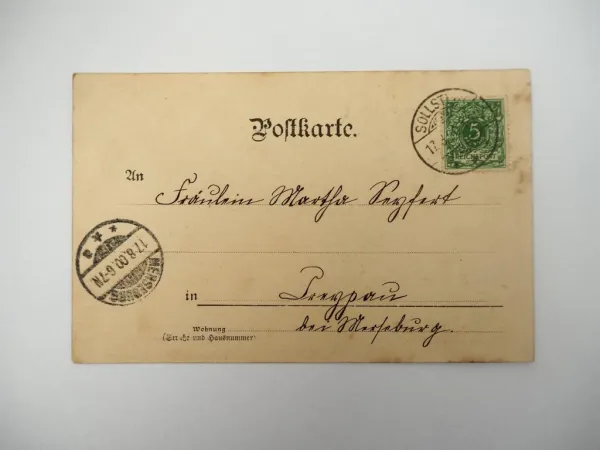 Postkarte.
SOLLST
17.
5
An
Fräulein Martha Seyfert
MERSEBURG
17.8.00.6-7N
in Creypau
bei Merseburg.
Wohnung
(Straße und Hausnummer)